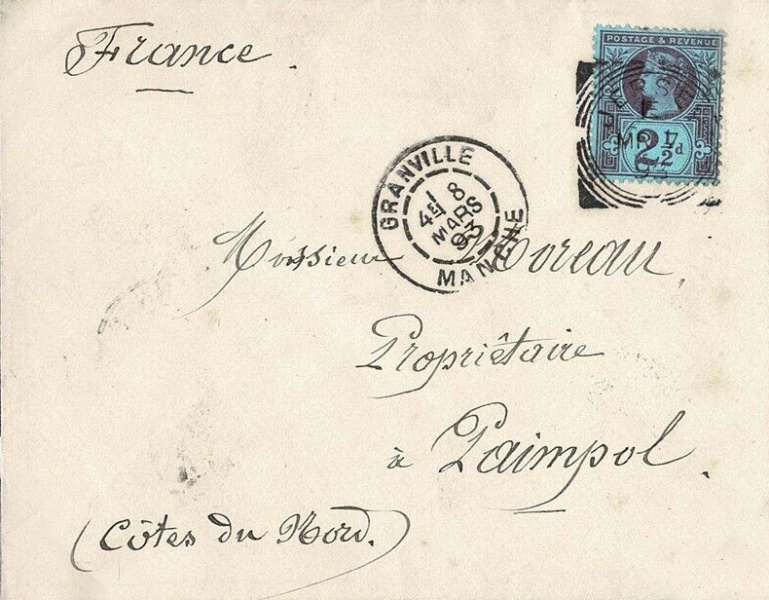 France.
POSTAGE & REVENUE
JERSEY
E
MR
93
2½d
GRANVILLE
4E 8
MARS
93
MANCHE
Monsieur Moreau,
Propriêtaire
à Paimpol.
(Côtes du Nord.)